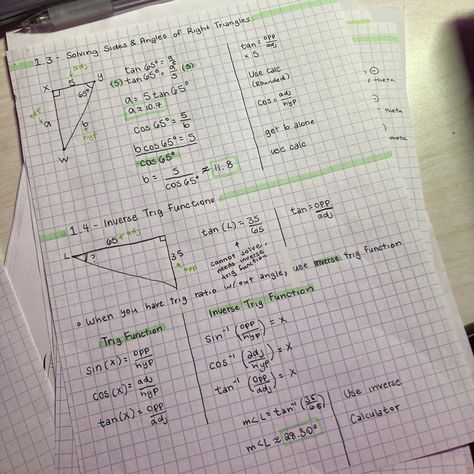 1.3 - Solving Sides & Angles of Right Triangles
adj
X 5 Y
65°
opp
a
b
hyp
W
tan 65° = a/5
(5) tan 65° = a/5 (5)
a = 5 tan 65°
a ≈ 10.7
cos 65° = 5/b
b cos 65° = 5
cos 65°
b = 5/cos 65° ≈ 11.8
tan = opp/adj
× 5
use calc
(rounded)
cos = adj/hyp
get b alone
use calc
theta
theta
theta
1.4 - Inverse Trig Functions
65 adj
L ?
35
opp
tan (L) = 35/65
cannot solve,
needs inverse
trig function
tan = opp/adj
• When you have trig ratio w/out angle, use inverse trig function
Trig Function
sin (x) = opp/hyp
cos (x) = adj/hyp
tan (x) = opp/adj
Inverse Trig Function
sin⁻¹ (opp/hyp) = x
cos⁻¹ (adj/hyp) = x
tan⁻¹ (opp/adj) = x
m∠L = tan⁻¹ (35/65)
m∠L ≈ 28.30°
Use inverse
Calculator